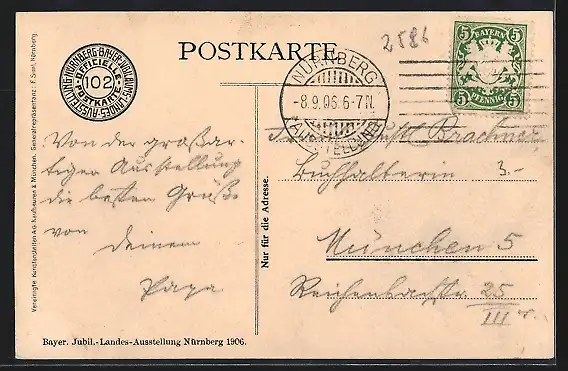 POSTKARTE
2586
NÜRNBERG-BAYER.JUBIL.LANDES-AUSSTELLUNG
OFFICIELLE
102
POSTKARTE
NÜRNBERG
-8.9.06.6-7N.
(AUSSTELLUNG)
5 5
BAYERN
PFENNIG
5 5
Von der großar-
tigen Ausstellung
die besten Grüße
von
Deinem
Papa
Brachner
Buchhalterin 3.-
München 5
Reichenbachstr. 25
III r.
Nur für die Adresse.
Vereinigte Kunstanstalten A-G. Kaufbeuren & München. Generalrepräsentanz: F. Sant, Nürnberg.
Bayer. Jubil.-Landes-Ausstellung Nürnberg 1906.